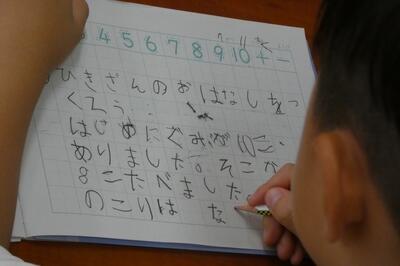 3 4 5 6 7 8 9 10 + -
ひきざんのおはなしをつ
くろう。
はじめにぐみが10こ
ありました。そこから
8こたべました。
のこりは な